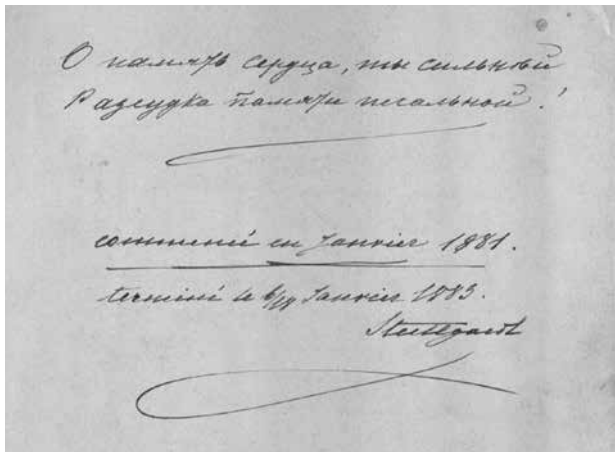 О память сердца, ты сильнѣй
Разсудка памяти печальной!
commencé en Janvier 1881.
terminé le 6/18 Janvier 1883.
Stuttgart